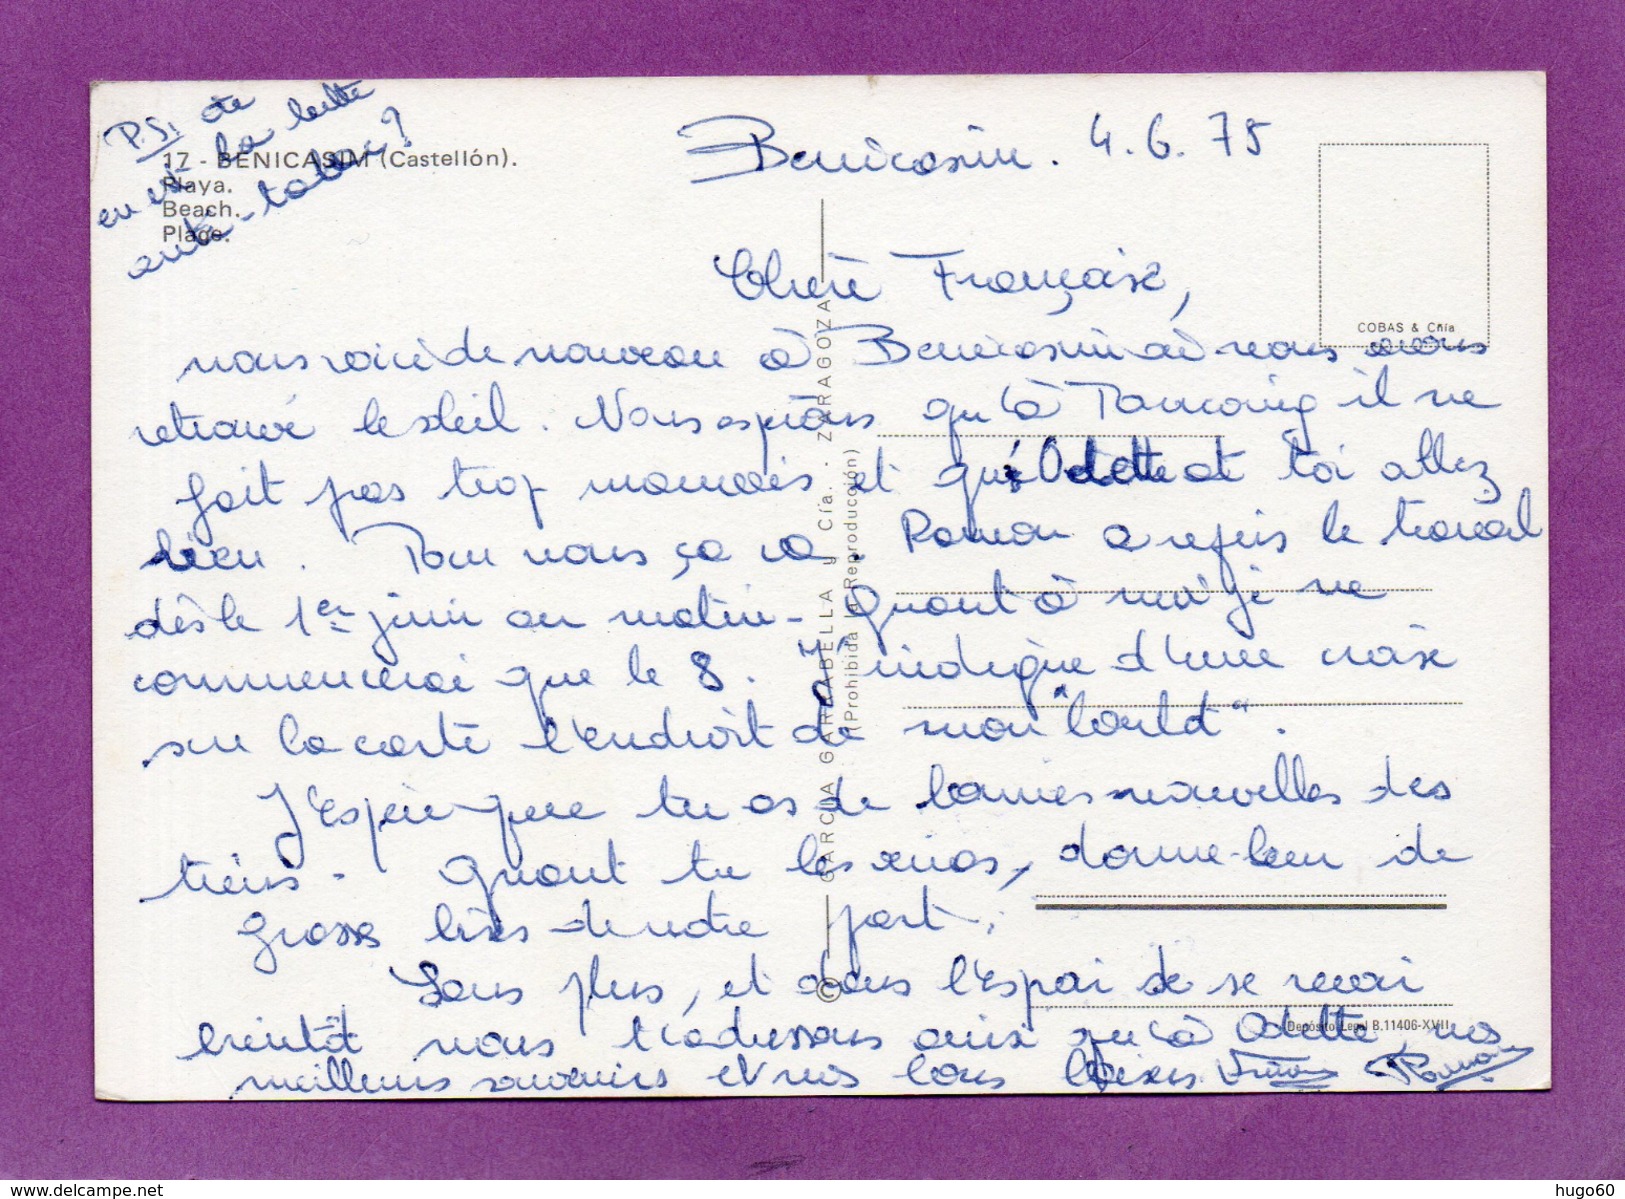 P.S. où
en est la lutte
anti-tabac?
17 - BENICASIM (Castellón).
Playa.
Beach.
Plage.
Benicasim. 4.6.75
COBAS & Cñia
Chère Françoise,
nous voici de nouveau à Benicasim où nous avons
retrouvé le soleil. Nous espérons qu'à Tourcoing il ne
fait pas trop mauvais et qu'Odette et toi allez
bien. Pour nous ça va. Ramon a repris le travail
dès le 1er juin au matin - Quant à moi je ne
commencerai que le 8. J'indique d'une croix
sur la carte l'endroit de mon "boulot".
J'espère que tu as de bonnes nouvelles des
tiens - Quand tu les verras, donne-leur de
grosses bises de notre part.
Sans plus, et dans l'espoir de se revoir
bientôt nous t'adressons ainsi qu'à Odette, nos
meilleurs souvenirs et nos bons baisers Ramon
© GARCIA GARRABELLA y Cía. - ZARAGOZA
(Prohibida la Reproducción)
Depósito Legal B.11406-XVII
delcampe.net
hugo60